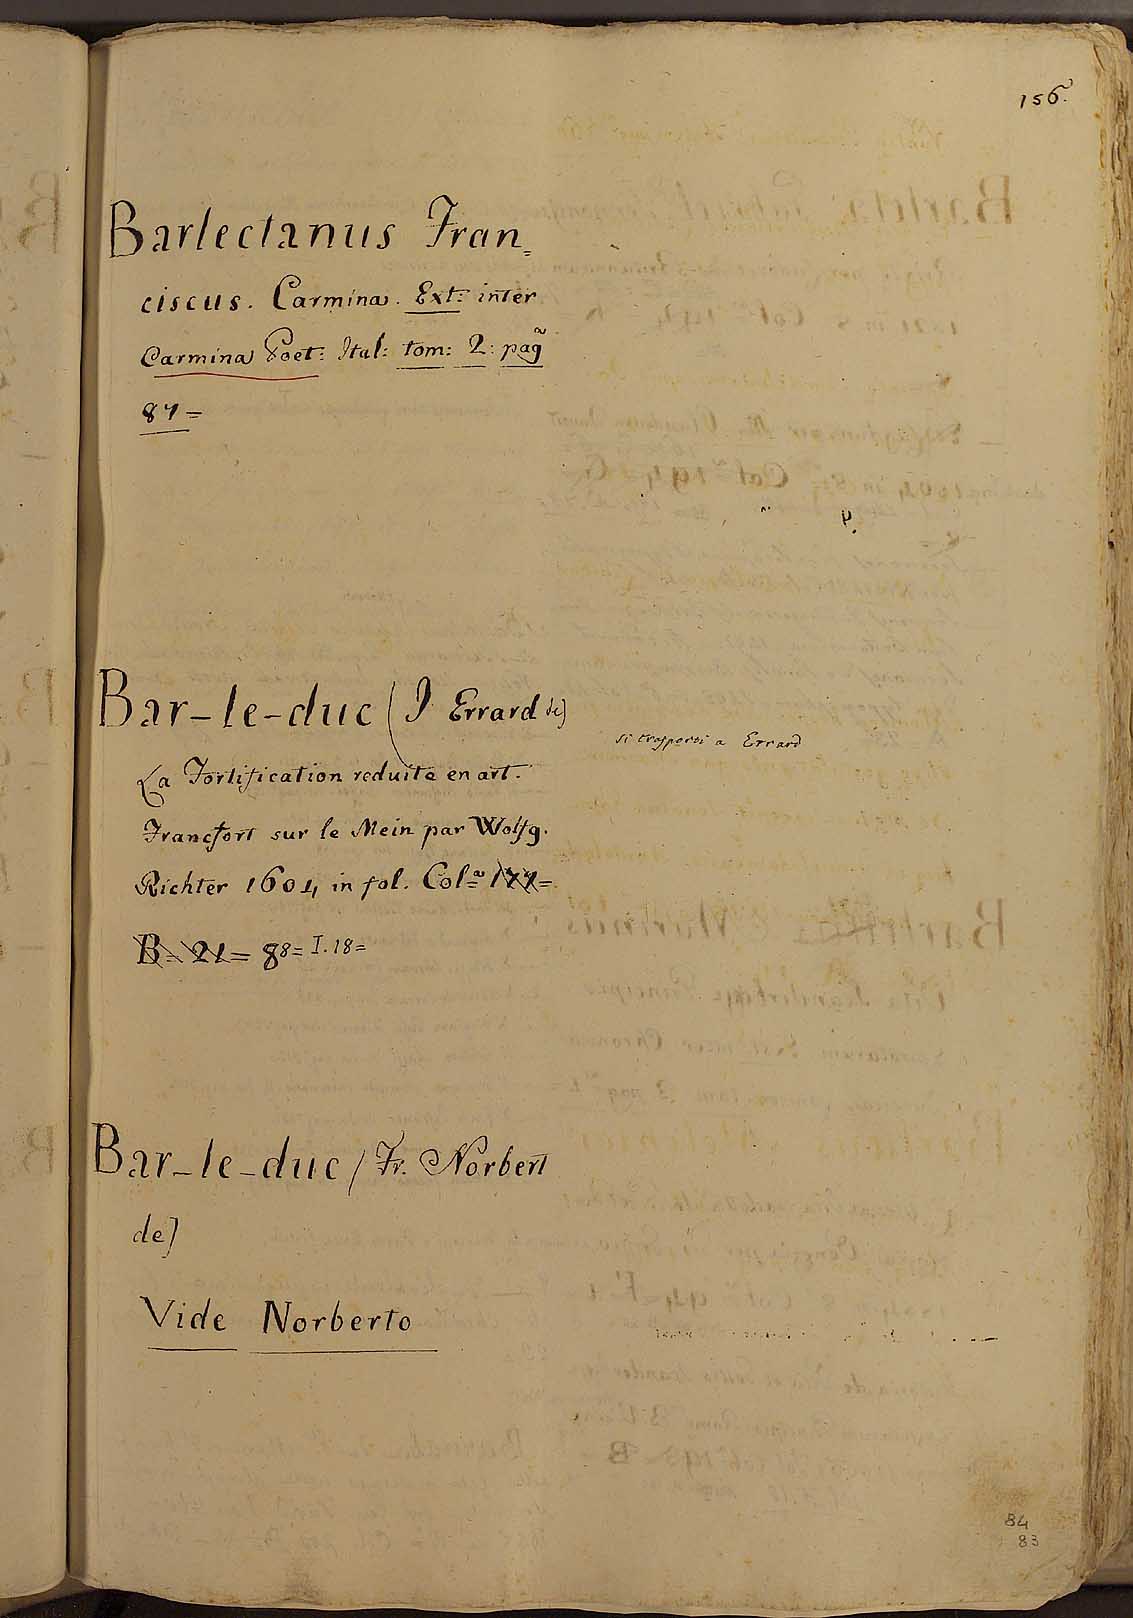 156.
Barlectanus Fran=
ciscus. Carmina. Ext: inter
Carmina Poet: Ital: tom: 2: pag
87=
Bar-le-duc (J Errard de)
si trasporti a Errard
La Fortification reduite en art.
Francfort sur le Mein par Wolfg.
Richter 1604 in fol. Col=a 177=
B= 21= 88= I. 18=
Bar-le-duc (Fr. Norbert
de)
Vide Norberto
84
83